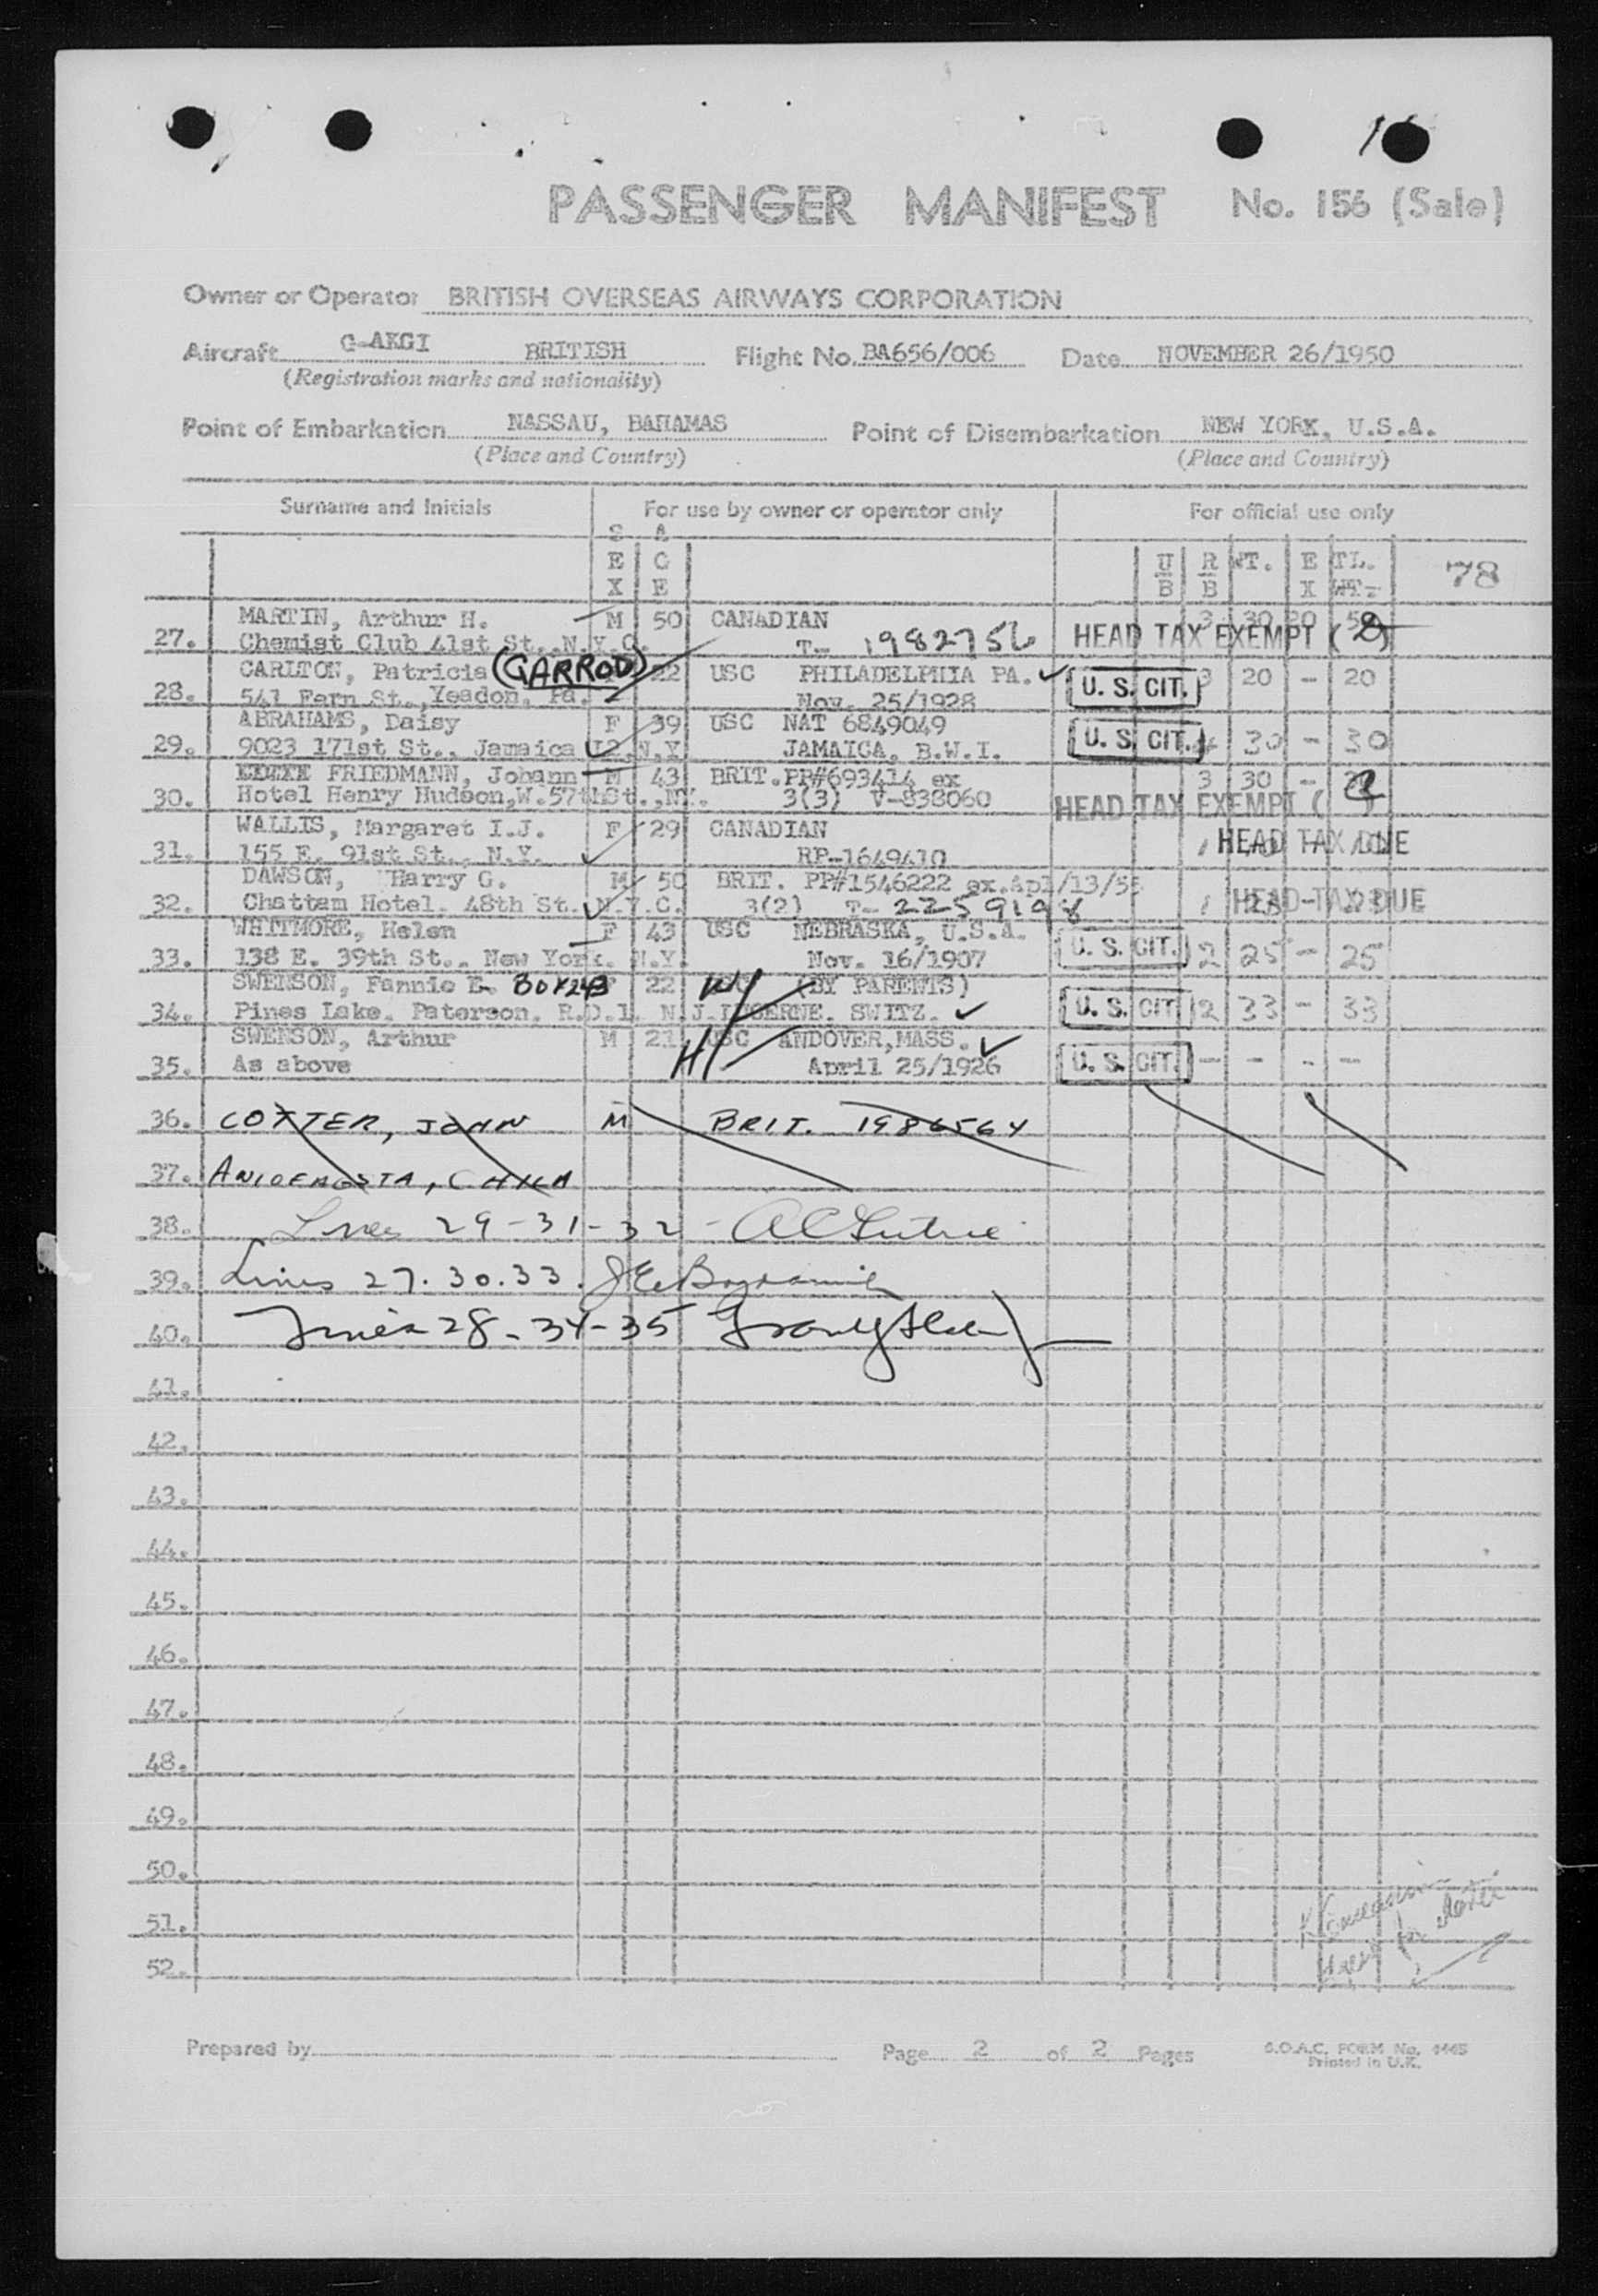 PASSENGER MANIFEST No. 156 (Sale)
Owner or Operator BRITISH OVERSEAS AIRWAYS CORPORATION
Aircraft G-AKGI BRITISH Flight No. BA656/006 Date NOVEMBER 26/1950
(Registration marks and nationality)
Point of Embarkation NASSAU, BAHAMAS Point of Disembarkation NEW YORK, U.S.A.
(Place and Country) (Place and Country)
Surname and Initials For use by owner or operator only For official use only
SEX AGE U/B R/B WT. EX TL. WT. 78
MARTIN, Arthur H. M 50 CANADIAN 3 30 20 50
27. Chemist Club 41st St., N.Y.C. T- 1982756 HEAD TAX EXEMPT ( )
CARLTON, Patricia (GARROD) 22 USC PHILADELPHIA PA. 3 20 - 20
28. 541 Fern St., Yeadon, Pa. Nov. 25/1928 U. S. CIT.
ABRAHAMS, Daisy F 39 USC NAT 6849049
29. 9023 171st St., Jamaica 12, N.Y. JAMAICA, B.W.I. U. S. CIT. 30 - 30
FRIEDMANN, Johann M 43 BRIT. PP#693414 ex 3 30 -
30. Hotel Henry Hudson, W. 57th St., NY. 3(3) V-838060 HEAD TAX EXEMPT ( )
WALLIS, Margaret I.J. F 29 CANADIAN
31. 155 E. 91st St., N.Y. RP-1649410 HEAD TAX DUE
DAWSON, Harry G. M 50 BRIT. PP#1546222 ex. Apl/13/55
32. Chattam Hotel. 48th St. N.Y.C. 3(2) T- 2259198 HEAD TAX DUE
WHITMORE, Helen F 43 USC NEBRASKA, U.S.A.
33. 138 E. 39th St., New York. N.Y. Nov. 16/1907 U. S. CIT. 2 25 - 25
SWENSON, Fannie E. 22 (BY PARENTS)
34. Pines Lake. Paterson. R.D.1. N.J. LUCERNE. SWITZ. U. S. CIT. 2 33 - 33
SWENSON, Arthur M 21 USC ANDOVER, MASS.
35. As above April 25/1926 U. S. CIT. - - - -
36. COTTER, JOHN M BRIT. 1986564
37.
38. Lines 29-31-32 -
39. Lines 27. 30. 33.
40. Lines 28-34-35
41.
42.
43.
44.
45.
46.
47.
48.
49.
50.
51.
52.
Prepared by Page 2 of 2 Pages B.O.A.C. FORM No. 4445
Printed in U.K.